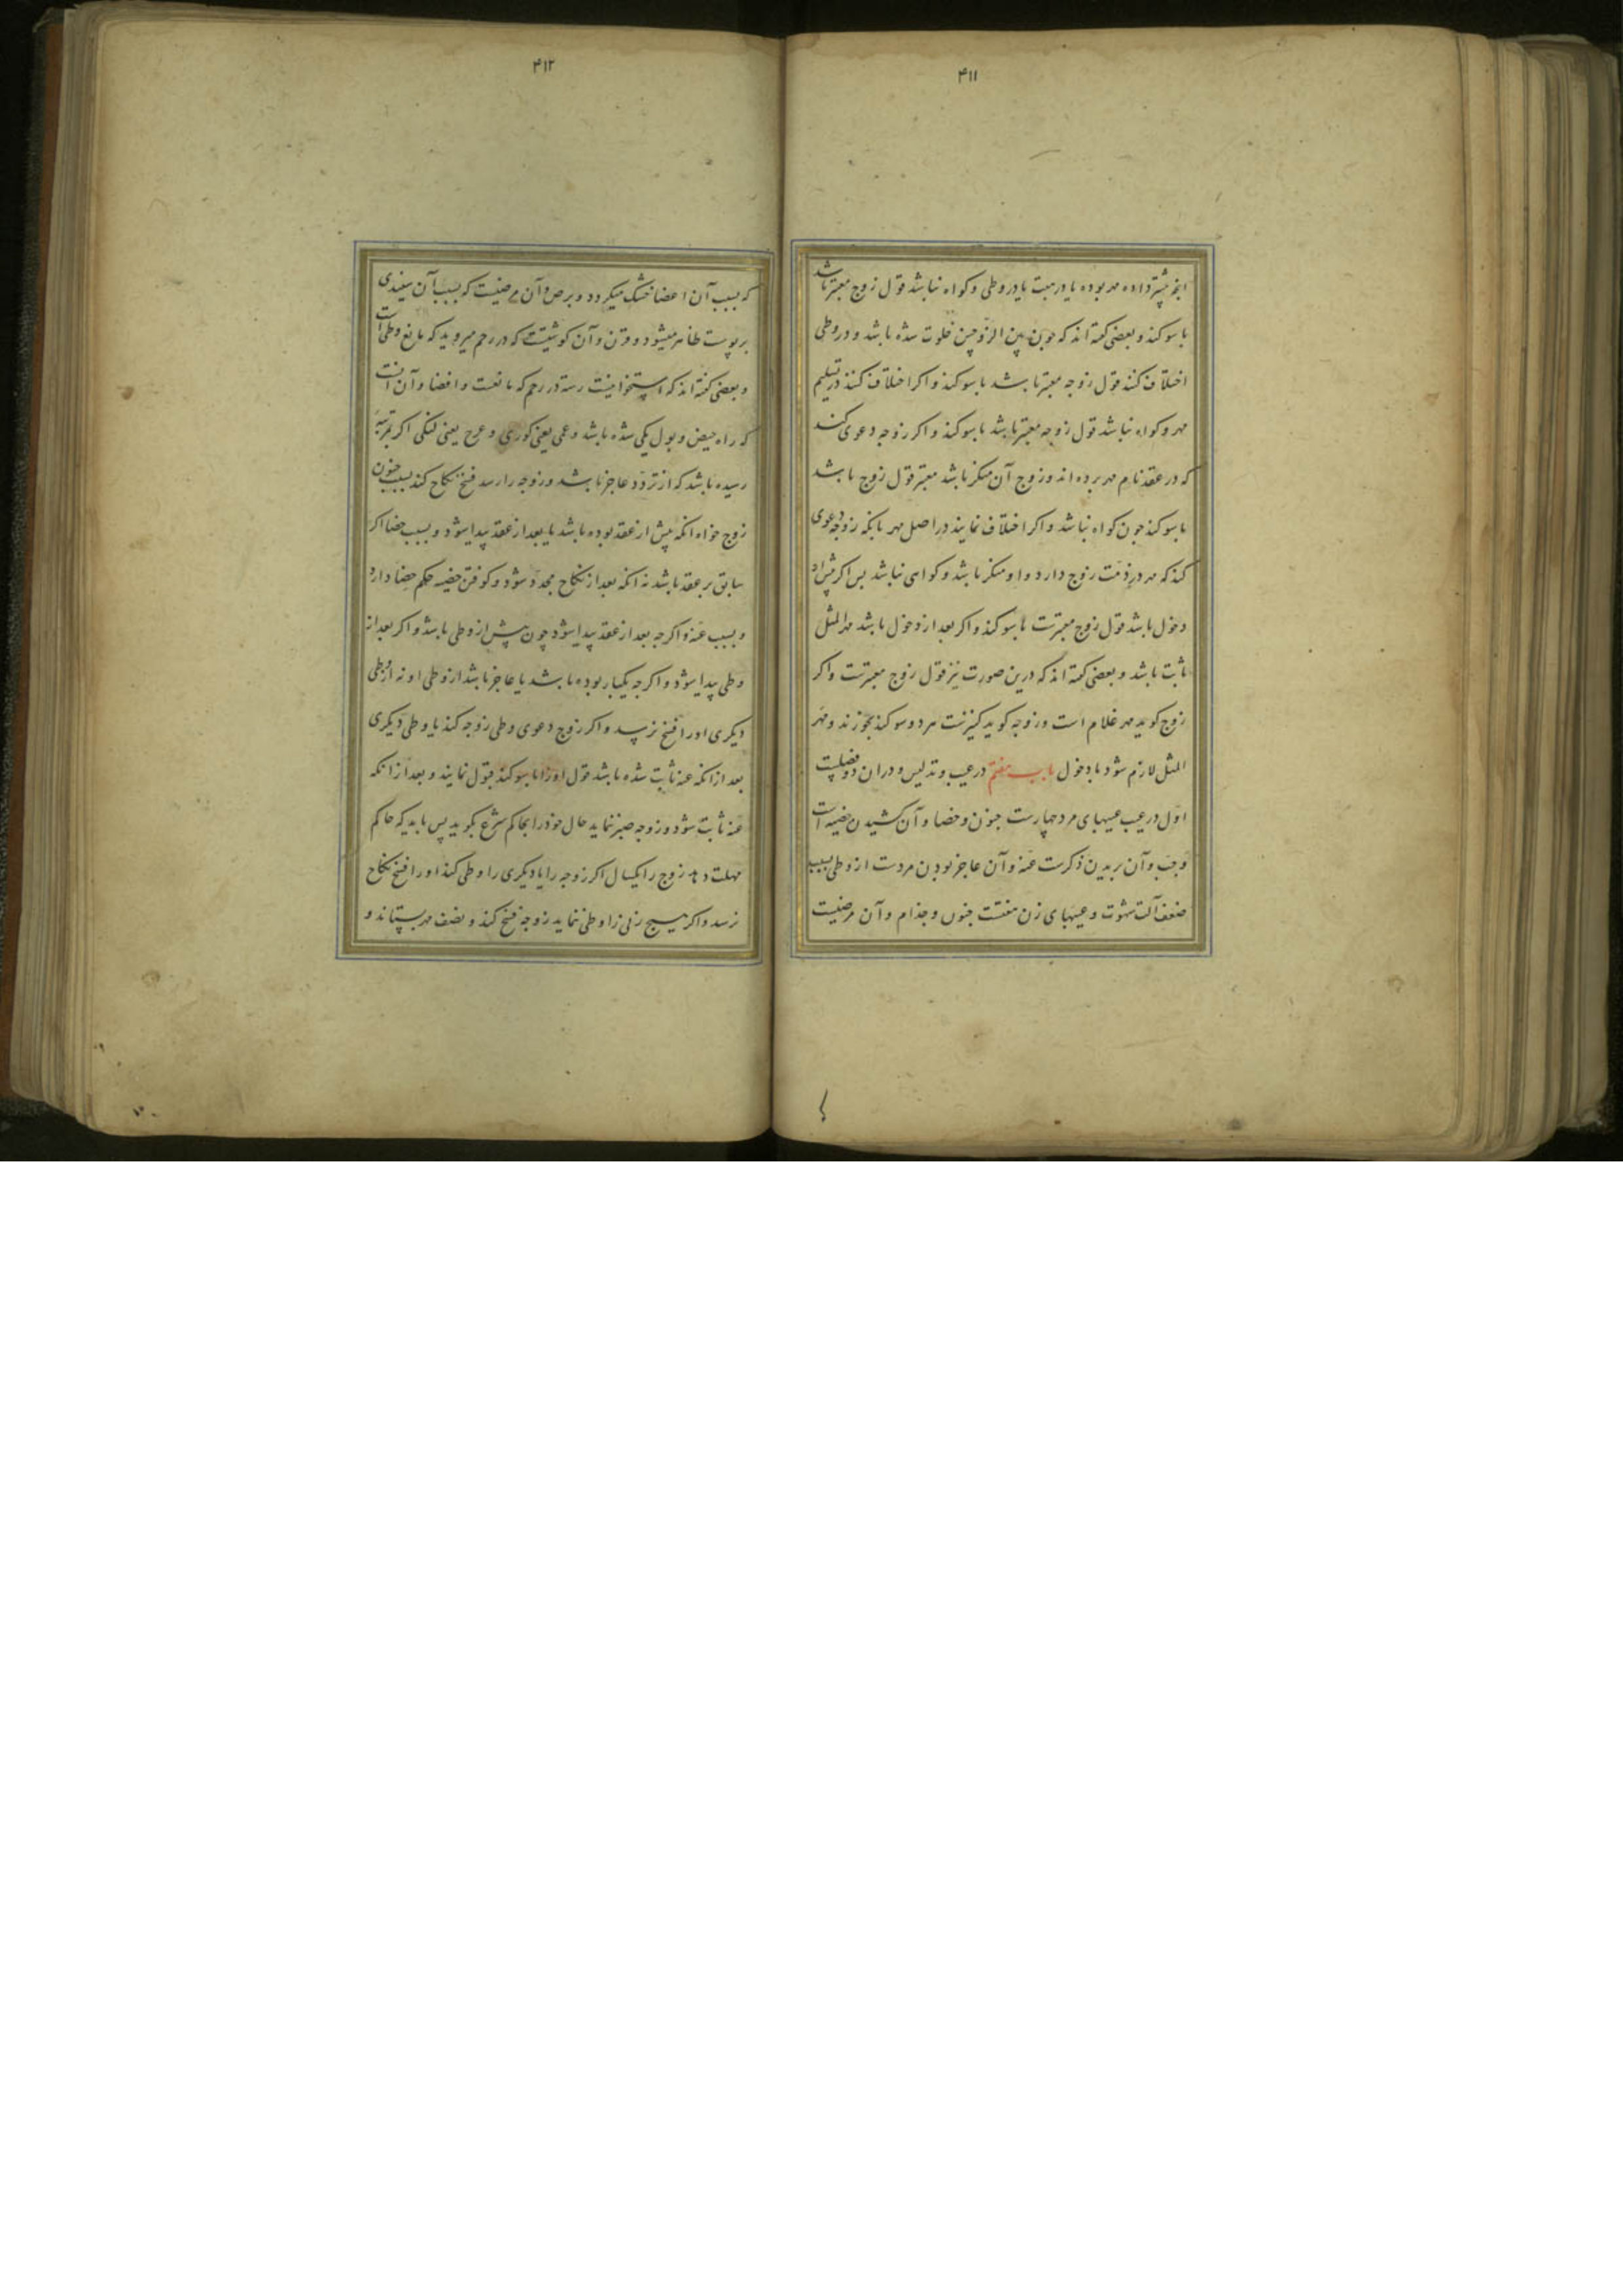 ۴۱۱
انچه پیشتر داده مهر بوده یا در هبت یا در وطی و کواه نباشد قول زوج معتبر باشد
با سوکند و بعضی کفته اند که چون بین الزوجین خلوت شده باشد و در وطی
اختلاف کنند قول زوجه معتبر باشد با سوکند و اکر اختلاف کنند در تسلیم
مهر و کواه نباشد قول زوجه معتبر باشد با سوکند و اکر زوجه دعوی کند
که در عقد نام مهر برده اند و زوج آن منکر باشد معتبر قول زوج باشد
با سوکند چون کواه نباشد و اکر اختلاف نمایند در اصل مهر بانکه زوجه دعوی
کند که مهر در ذمت زوج دارد و او منکر باشد و کواهی نباشد پس اکر پیش از
دخول باشد قول زوج معتبرست با سوکند و اکر بعد از دخول باشد مهر المثل
ثابت باشد و بعضی کفته اند که درین صورت نیز قول زوج معتبرست و اکر
زوج کوید مهر غلام است و زوجه کوید کنیزست هر دو سوکند بخورند و مهر
المثل لازم شود با دخول باب هفتم در عیب و تدلیس و دران دو فصلیست
اول در عیب عیبهای مرد چهارست جنون و خصا و آن کشیدن خصیه است
و جب و آن بریدن ذکرست عنه و آن عاجز بودن مردست از وطی بسبب
ضعف آلت شهوت و عیبهای زن هفتست جنون و جذام و آن مرضیست
۴۱۲
که بسبب آن اعضا خشک میکردد و برص و آن مرضیست که بسبب آن سفیدی
بر پوست ظاهر میشود و قرن و آن کوشتیست که در رحم میروید که مانع وطی است
و بعضی کفته اند که استخوانیست رسته در رحم که مانعست و افضا و آن آنست
که راه حیض و بول یکی شده باشد و عمی یعنی کوری و عرج یعنی لنکی اکر بمرتبه
رسیده باشد که از تردد عاجز باشد و زوجه را رسد فسخ نکاح کند بسبب جنون
زوج خواه انکه پیش از عقد بوده باشد یا بعد از عقد پیدا شود و بسبب خصا اکر
سابق بر عقد باشد نه انکه بعد از نکاح مجدد شود و کوفتن خصیه حکم خصا دارد
و بسبب عنه و اکرچه بعد از عقد پیدا شود چون پیش از وطی باشد و اکر بعد از
وطی پیدا شود و اکرچه یکبار بوده باشد یا عاجز باشد از وطی او نه از وطی
دیکری او را فسخ نرسد و اکر زوج دعوی وطی زوجه کند یا وطی دیکری
بعد از انکه عنه ثابت شده باشد قول او را با سوکند قبول نمایند و بعد از انکه
عنه ثابت شود و زوجه صبر ننماید حال خود را بحاکم شرع بکوید پس باید که حاکم
مهلت دهد زوج را یکسال اکر زوجه را یا دیکری را وطی کند او را فسخ نکاح
نرسد و اکر هیچ زنی را وطی ننماید زوجه فسخ کند و نصف مهر بستاند و